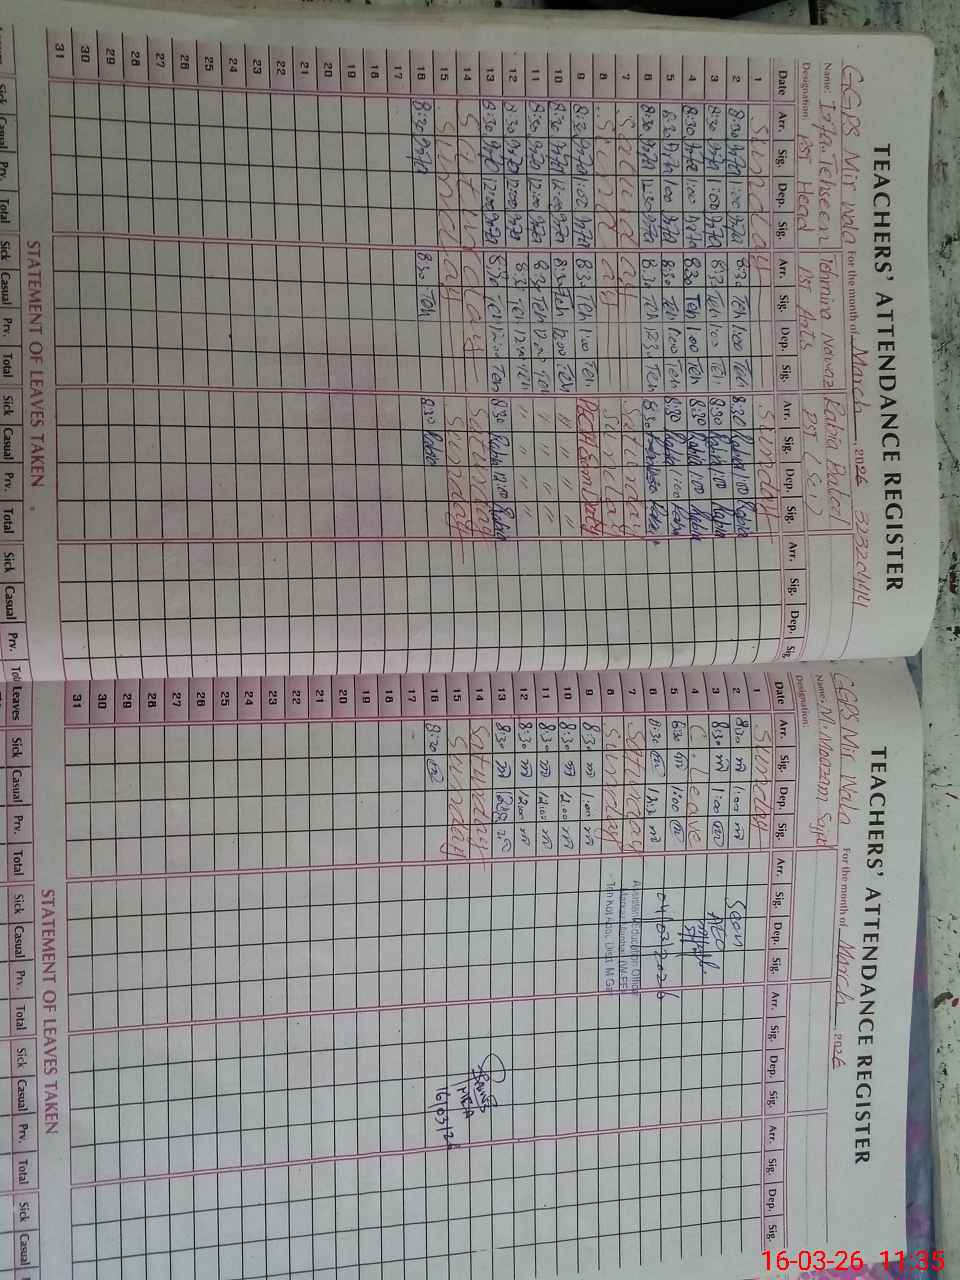 TEACHERS' ATTENDANCE REGISTER
GGPS Mir Wala For the month of March 2026 32320444
Name: Tehseen Tehmina Nawaz Rabia Batool
Designation: PST Head PST Arts PST (Sci)
Date Arr. Sig. Dep. Sig. Arr. Sig. Dep. Sig. Arr. Sig. Dep. Sig. Arr. Sig. Dep. Sig.
1 Sunday Sunday
2 8:30 1:00 8:30 Teh 1:00 Teh 8:30 Rabia 1:00 Rabia
3 8:30 1:00 8:30 Teh 1:00 Teh 8:30 Rabia 1:00 Rabia
4 8:30 1:00 8:30 Teh 1:00 Teh 8:30 Rabia 1:00 Rabia
5 8:30 1:00 8:30 Teh 1:00 Teh 8:30 Rabia 1:00 Rabia
6 8:30 12:30 8:30 Teh 12:30 Teh 8:30
7 Saturday Saturday
8 Sunday Sunday
9 8:30 1:00 8:30 Teh 1:00 Teh Exam Duty
10 8:30 12:00 8:30 Teh 12:00 Teh " "
11 8:30 12:00 8:30 Teh 12:00 Teh " " " "
12 8:30 12:00 8:30 Teh 12:00 Teh " " " "
13 8:30 12:00 8:30 Teh 12:00 Teh 8:30 Rabia 12:00 Rabia
14 Saturday Saturday
15 Sunday Sunday
16 8:30 8:30 Teh 8:30 Rabia
17
18
19
20
21
22
23
24
25
26
27
28
29
30
31
STATEMENT OF LEAVES TAKEN
Sick Casual Prv. Total Sick Casual Prv. Total Sick Casual Prv. Total Sick Casual Prv.
TEACHERS' ATTENDANCE REGISTER
GGPS Mir Wala For the month of March 2026
Name: Mr. Moazam
Designation:
Date Arr. Sig. Dep. Sig. Arr. Sig. Dep. Sig. Arr. Sig. Dep. Sig. Arr. Sig. Dep. Sig.
1 Sunday
2 8:30 1:00 Seen
3 8:30 1:00 AEO
4 C. Leave
5 8:30 1:00
6 8:30 04/03/2026
7 Saturday Assistant Education Officer
8 Sunday
9 8:30 1:00
10 8:30 12:00
11 8:30 12:00
12 8:30 12:00
13 8:30
14 Saturday
15 Sunday MEA
16 8:30 16/03/26
17
18
19
20
21
22
23
24
25
26
27
28
29
30
31
STATEMENT OF LEAVES TAKEN
Leaves Sick Casual Prv. Total Sick Casual Prv. Total Sick Casual Prv. Total Sick Casual
16-03-26 11:35